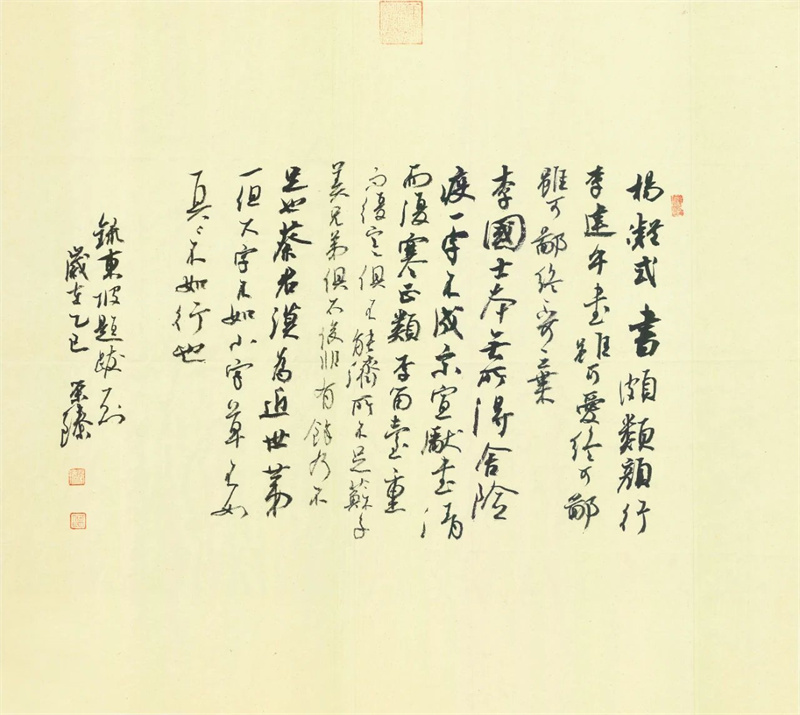 楊凝式書頗類顏行
李建中書雖可愛終可鄙
雖可鄙終不可棄
李國士本無所得舍險
瘦一字不成宋宣獻書清
而復寒正類李留臺重
而復寒俱不能濟所不足蘇子
美兄弟俱太俊非有餘乃不
足也蔡君謨為近世第
一但大字不如小字草不如
真々不如行也
錄東坡題跋一則
歲在乙巳